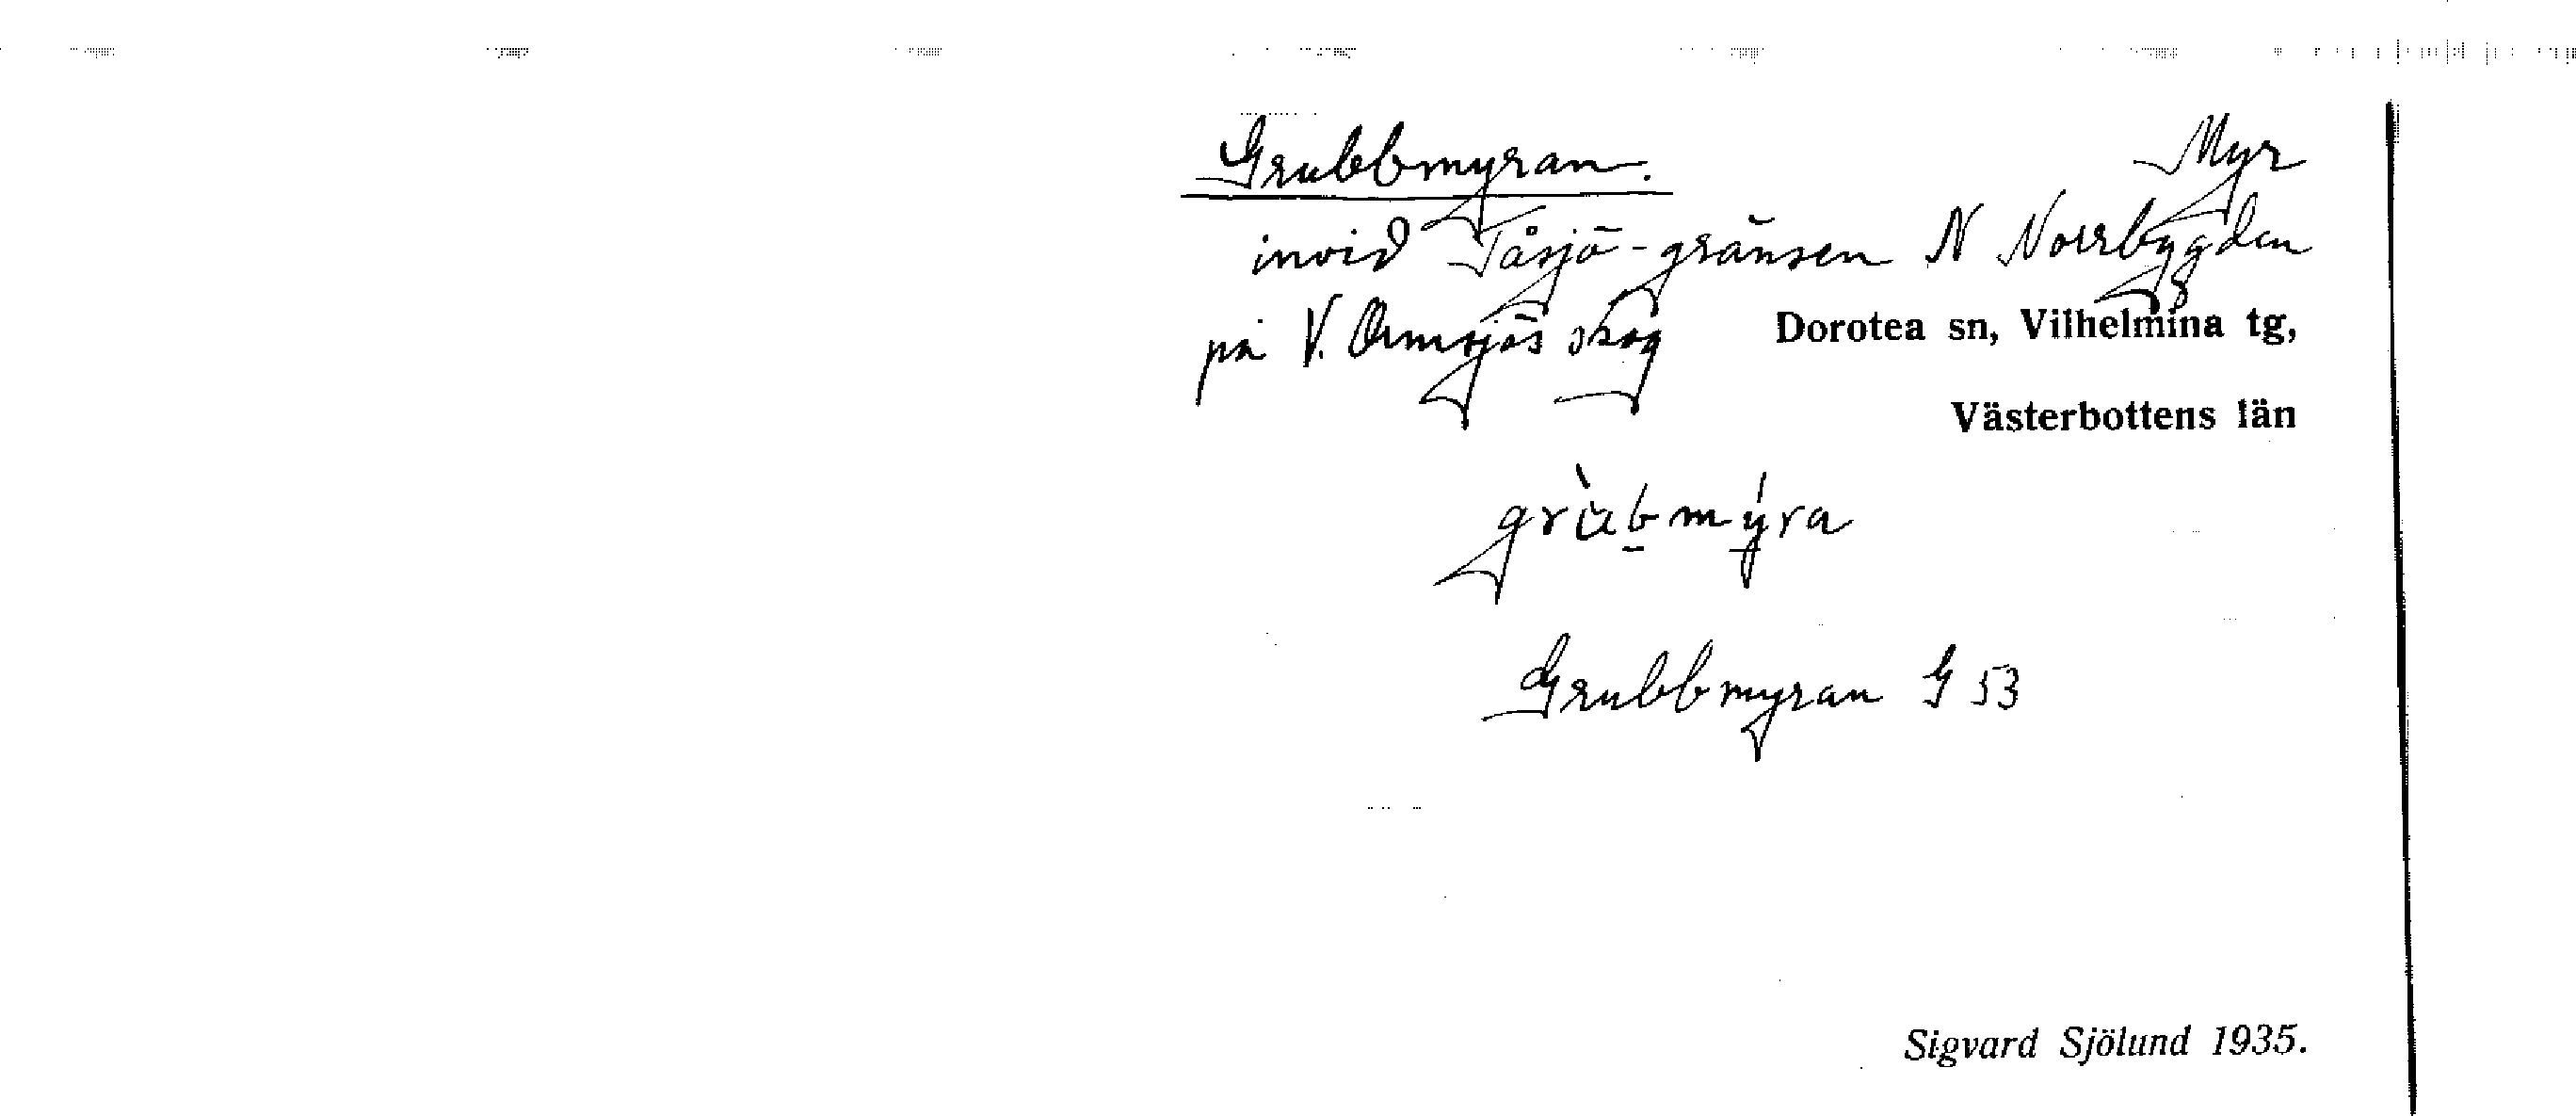 Grubbmyran. Myr
invid Tåsjö-gränsen N Norrbygden
på V. Ormsjös skog Dorotea sn, Vilhelmina tg,
Västerbottens län
grùbmýra
Grubbmyran G 53
Sigvard Sjölund 1935.